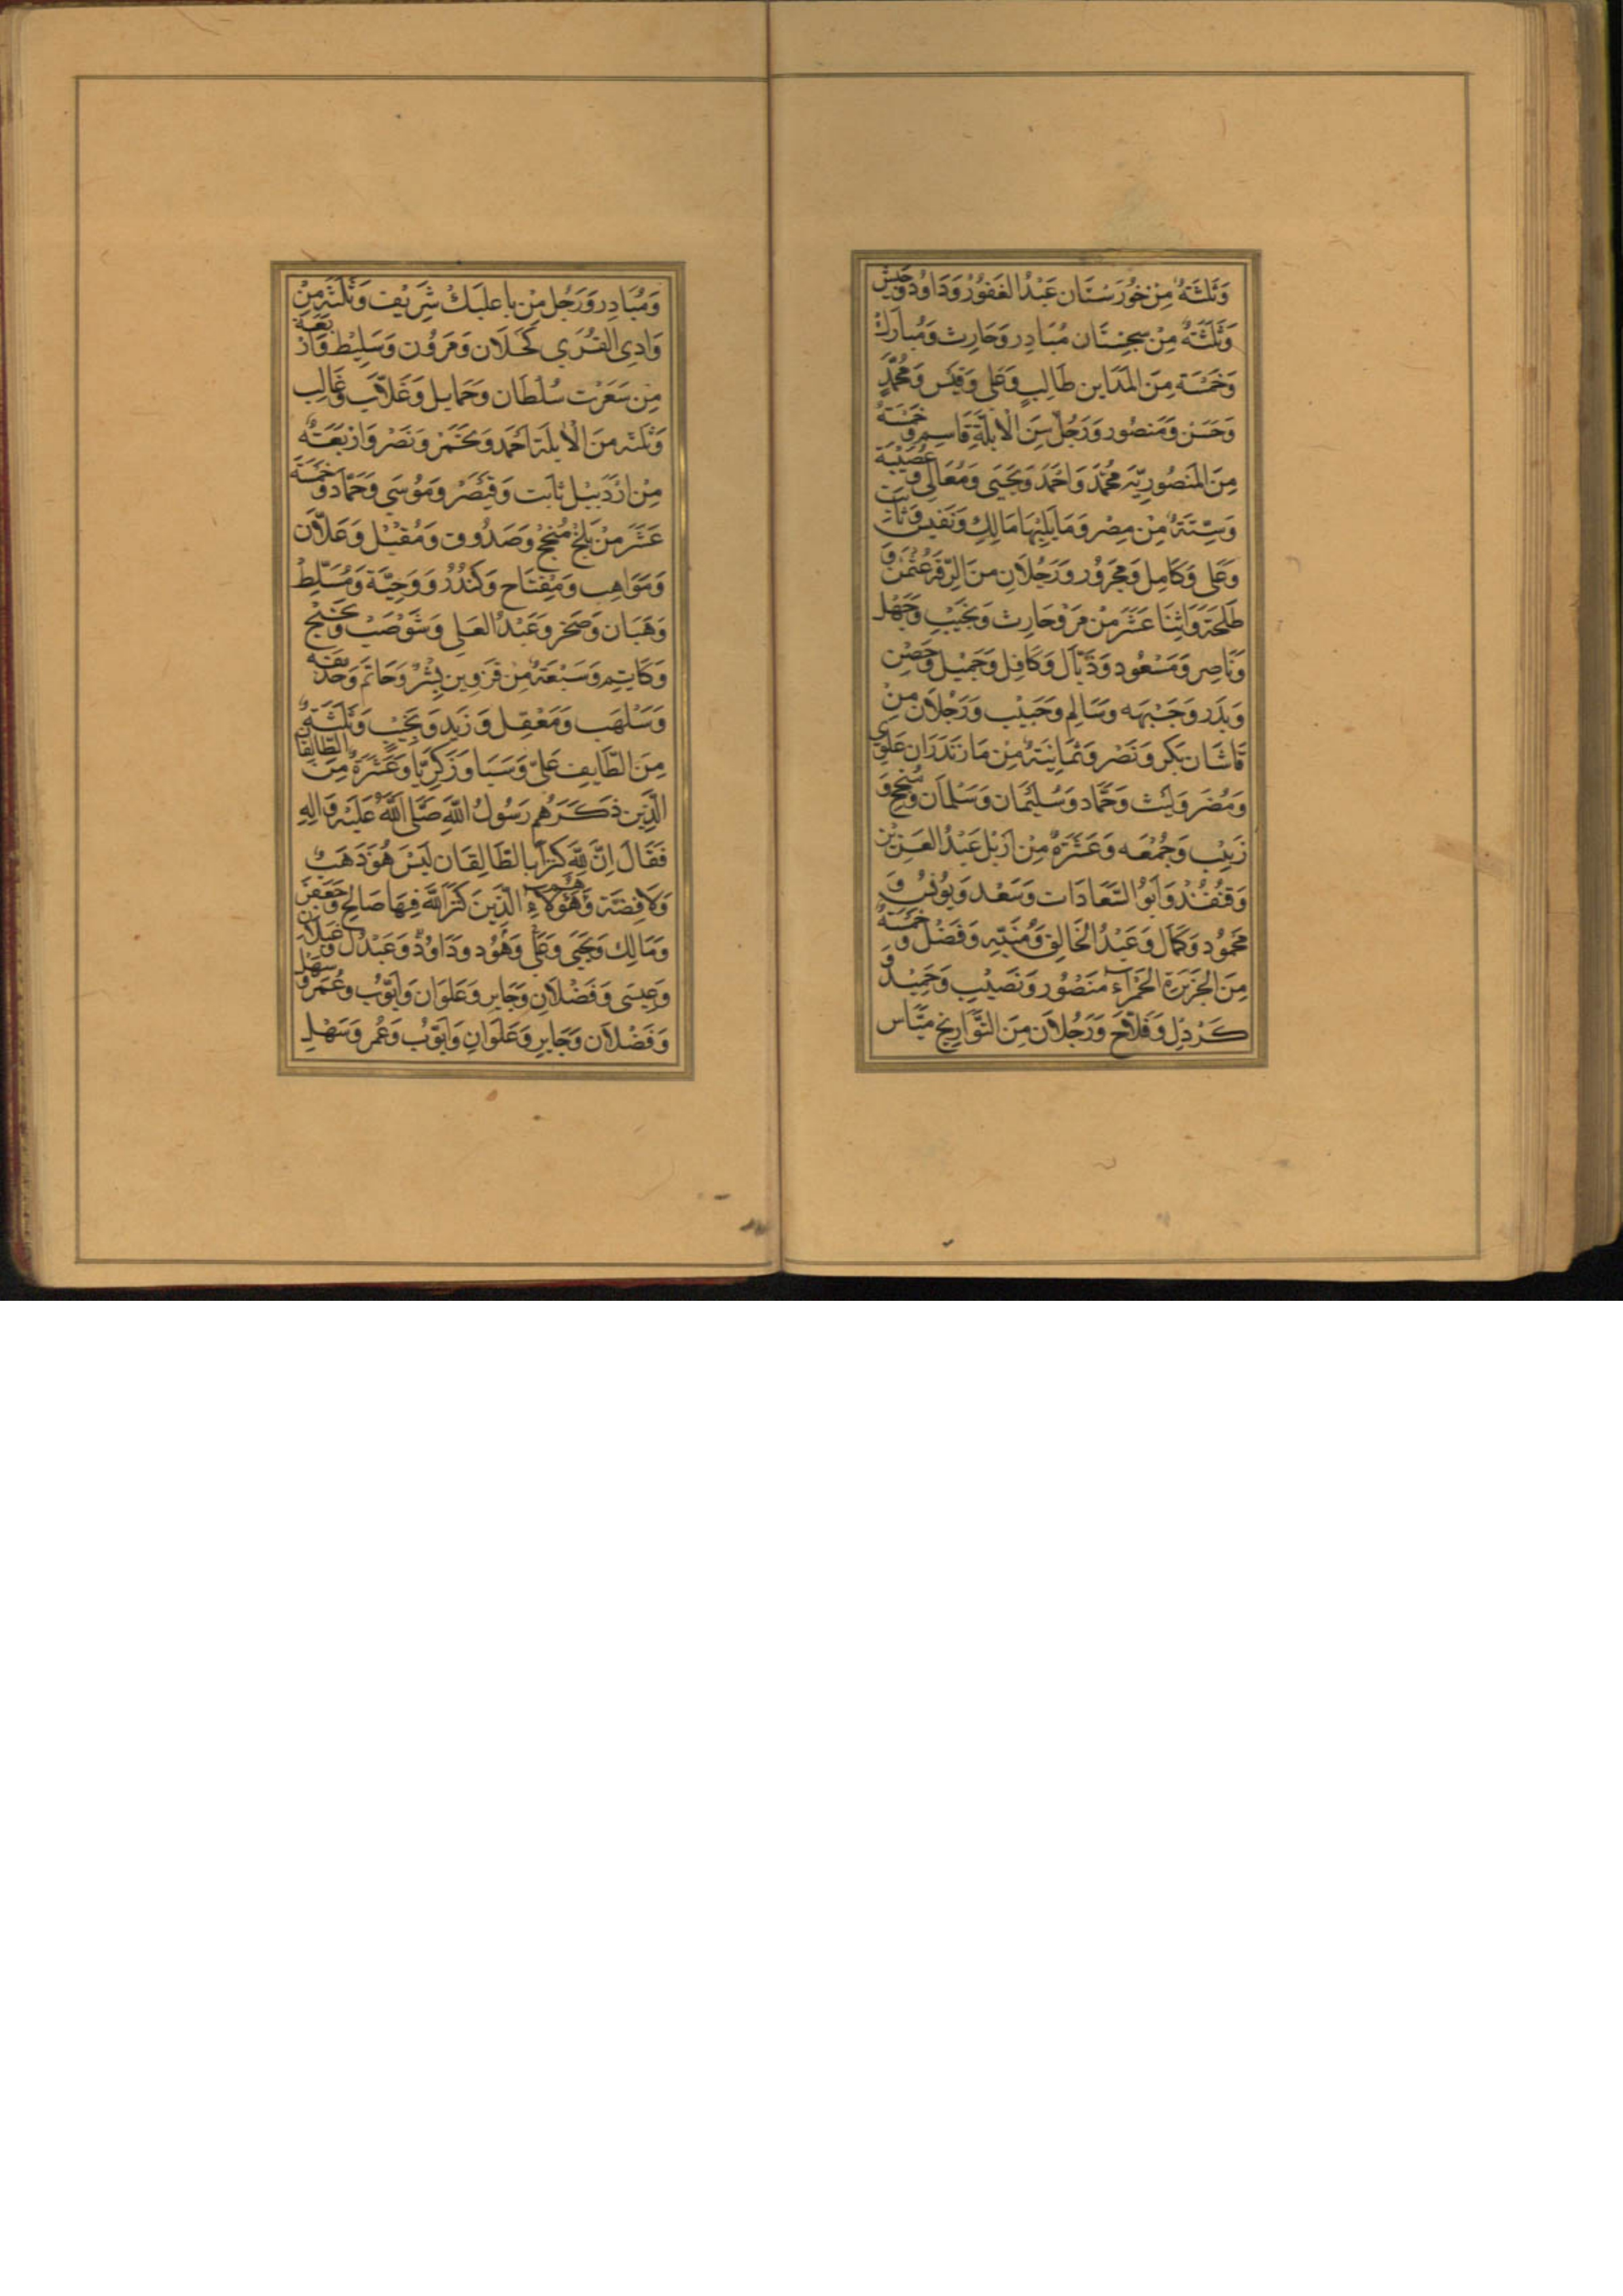 وَثَلَثَةٌ مِنْ خُورَسْتَان عَبْدُ الغَفُوُرْ وَدَاوُدْ وَحَبِيش
وَثَلَثَةٌ مِنْ سِجِسْتَان مُبَادِر وَحَارِث وَمُبارَك
وَخَمْسَة مِنَ المَدَاين طَالِبٍ وَعَلِي وَقَيْس وَمُحَمَّدٍ
وَحَسَن وَمَنصُور وَرَجُلٌ مِنَ الْابلَّةِ قَاسِم وَخَمْسَةٌ
مِنَ المَنصُورِيَّه مُحَمَّد وَاحَمَد وَيَحيَى وَمُعَالِي وَعُصَيْبَة
وَسِتَّةٌ مِن مِصْر وَمَا يَلِيْهَا مَالِكٍ وَنَفيس وَثَابِت
وَعَلي وَكَامِل وَمجرُور وَرَجُلاَنِ منَ الرّقَة عُثمَن وَ
طَلحَة وَاثِنَا عَشَرَ مْن مَرْو حَارِث وَنجَيْبٍ وَجَهْل
وَنَاصِر وَمَسْعُود وَذَيَّال وَكَافِل وَجَمِيْل وَحِصْن
وَبَدَر وَجَبْهَه وَسَالِم وَحَبِيْب وَرَجُلاَن مِنْ
قَاشَان بَكر وَنَصْر وَثَمَاِنيَةٌ مِنْ مَازنَدَرَان عَلَوِي
وَمُضَر وَليَث وَحَمَّاد وَسُليْمَان وَسَلْمَان وَمُنْجِح وَ
زَبيْب وَجُمْعَه وَعَشَرَةٌ مِنْ اَرْبُل عَبْدُ العَزِيْز
وَقنُفُذْ وَاَبُو السَّعَادَات وَسَعْد وَيوُنسُ وَ
مَحمُود وَكمَال وَعَبْدُ الخَالِق وَمُنَبّه وَفَضْل وَخَمْسَةٌ
مِنَ الجَزيَرة الحَمْرآء مَنصُور وَنَصَيْب وَحَمِيْد وَ
كَردْل وَفلاَّح وَرَجُلاَن مِنَ التَّوَارِيخ ميَّاس
وَمُبَادِر وَرَجُل مِنْ باعلبَك شَرِيف وَثَلثَة مِنْ
وَادِي القُرَي كَحَلَان وَمَروُن وَسَلِيْط وَاَرْبعَة
مِن سَعَرْت سُلْطَان وَحَمايل وَغَلاَّب وَغَالِب
وَثَلثَة مِنَ الْابلَة اَحَمد وَمخَتَمر وَنَصْر وَارْبَعَةٌ
مِنْ ارْدَبيْل ثابَت وَقَيْصَر وَمُوسَي وَحَمَّاد وَخَمْسَة
عَشَرَ مِنْ بَلْخ مُنجِحْ وَصَدُوق وَمُقبْل وَعَلاَّن
وَمَوَاهِب وَمِفْتَاح وَكنْدُرْ وَوَحِيَّة وَمُسَلِّط
وَهَبَان وَصَخر وَعَبْدُ العَلِي وَشَوْصَبْ وَخَنْجْ
وَكَاتِم وَسَبْعَةٌ مِنْ قزوين بِشْر وَحَاتَم وَحَدَيفَه
وَسَلْهَب وَمَعْقِل وَزَيد وَنَجَيْبٍ وَثَلَثَةٌ
مِنَ الطَّايف عَلِيّ وَسَبَا وَزَكرِيَّا وَعَشَرَةٌ مِنَ الطَّالِقَان
الَّذِين ذَكَرَهُم رَسُولُ اللهِ صَلَّى اللهُ عَلَيْهِ وَالِهِ
فَقَالَ اِنَّ لِلهِ كَنزَا بِالطَّالِقَان لَيْسَ هُوَ ذَهَبٌ
وَلاَ فِضَّة وَهَوُلاَءِ هُم الَّذِينَ كَنزَ اللهُ فِيهَا صَالِح وَجَعَفَر
وَمَالِك وَيَحيَى وَعَلي وَهُود وَدَاوُد وَعَبْدُ ل وَغَيلاَن
وَعِيسَى وَفَضْلاَن وَجَابِر وَعَلَوَان وَاَيّوُب وَعُمَر وَسَهْل
وَفَضْلاَن وَجَابِر وَعَلَوَانِ وَاَيوُبٌ وَعُمر وَسَهْلِ